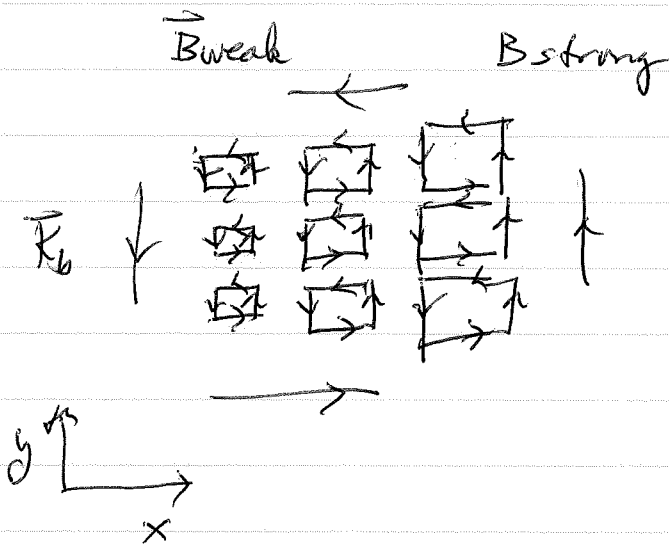 B weak B strong
K_b
y
x